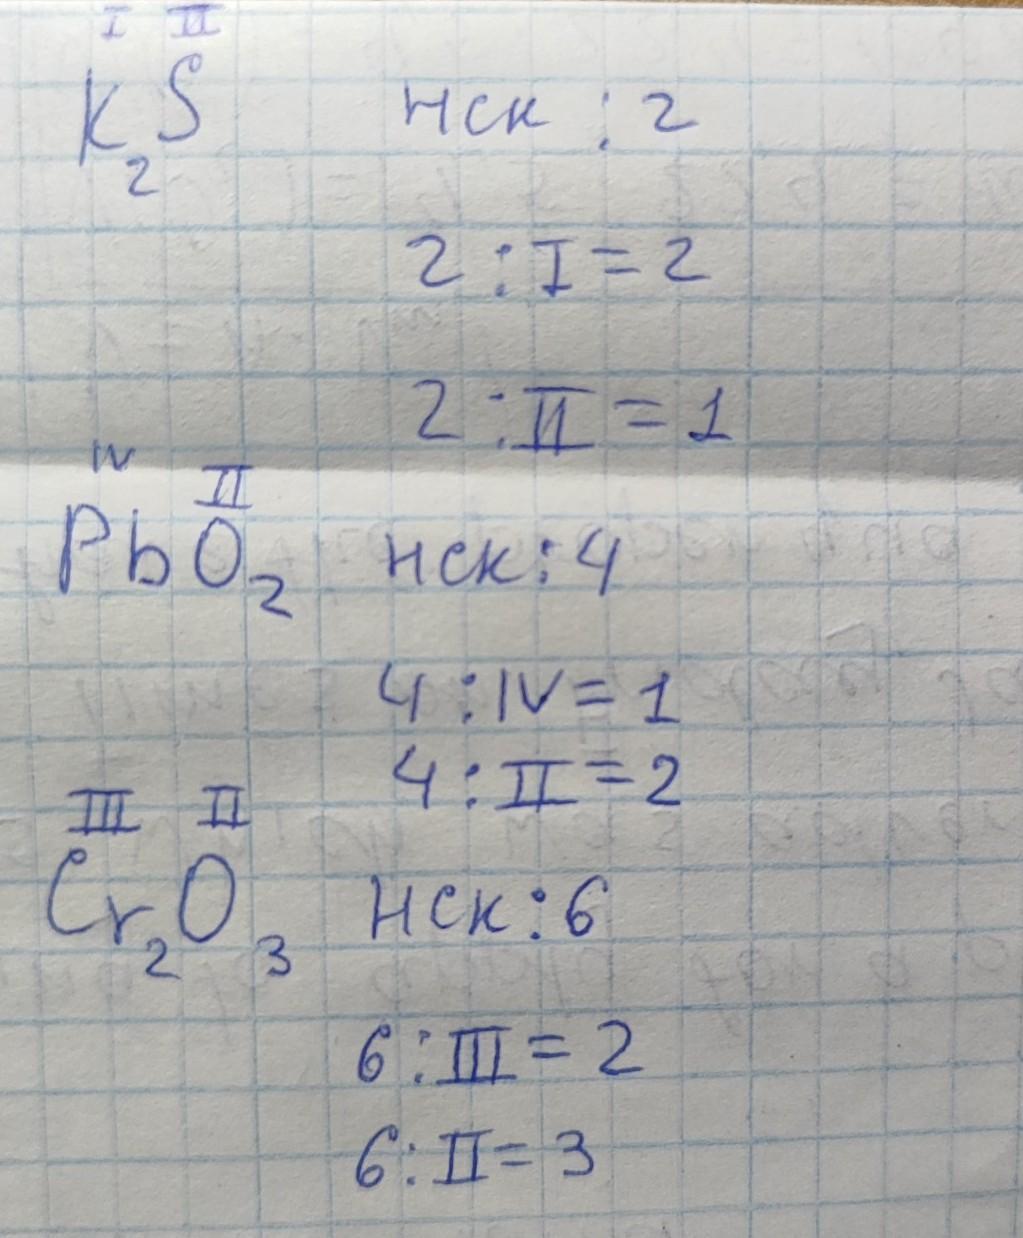 I II
K₂S НСК : 2
2 : I = 2
2 : II = 1
IV II
PbO₂ НСК : 4
4 : IV = 1
4 : II = 2
III II
Cr₂O₃ НСК : 6
6 : III = 2
6 : II = 3